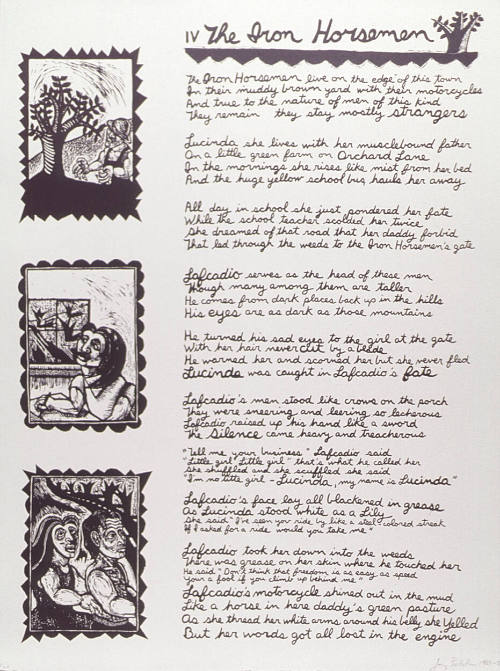 IV The Iron Horsemen
The Iron Horsemen live on the edge of this town
In their muddy brown yard with their motorcycles
And true to the nature of men of this kind
They remain they stay mostly strangers
Lucinda she lives with her musclebound father
On a little green farm on Orchard Lane
In the mornings she rises like mist from her bed
And the huge yellow school bus hauls her away
All day in school she just pondered her fate
While the school teacher scolded her twice
She dreamed of that road that her daddy forbid
That led through the weeds to the Iron Horsemen's gate
Lafcadio serves as the head of these men
Though many among them are taller
He comes from dark places back up in the hills
His eyes are as dark as those mountains
He turned his sad eyes to the girl at the gate
With her hair never cut by a blade
He warned her and scorned her but she never fled
Lucinda was caught in Lafcadio's fate
Lafcadio's men stood like crows on the porch
They were sneering and leering so lecherous
Lafcadio raised up his hand like a sword
The Silence came heavy and treacherous
"Tell me your business" Lafcadio said
"Little girl" "Little girl" that's what he called her
She shuffled and she scuffled she said
"I'm no little girl - Lucinda, my name is Lucinda"
Lafcadio's face lay all blackened in grease
As Lucinda stood white as a Lily
She said "I've seen you ride by like a steel colored streak
If I asked for a ride would you take me"
Lafcadio took her down into the weeds
There was grease on her skin where he touched her
He said "Don't think that freedom is as easy as speed
Your a fool if you climb up behind me"
Lafcadio's motorcycle shined out in the mud
Like a horse in here daddy's green pasture
As she thread her white arms around his belly she Yelled
But her words got all lost in the engine